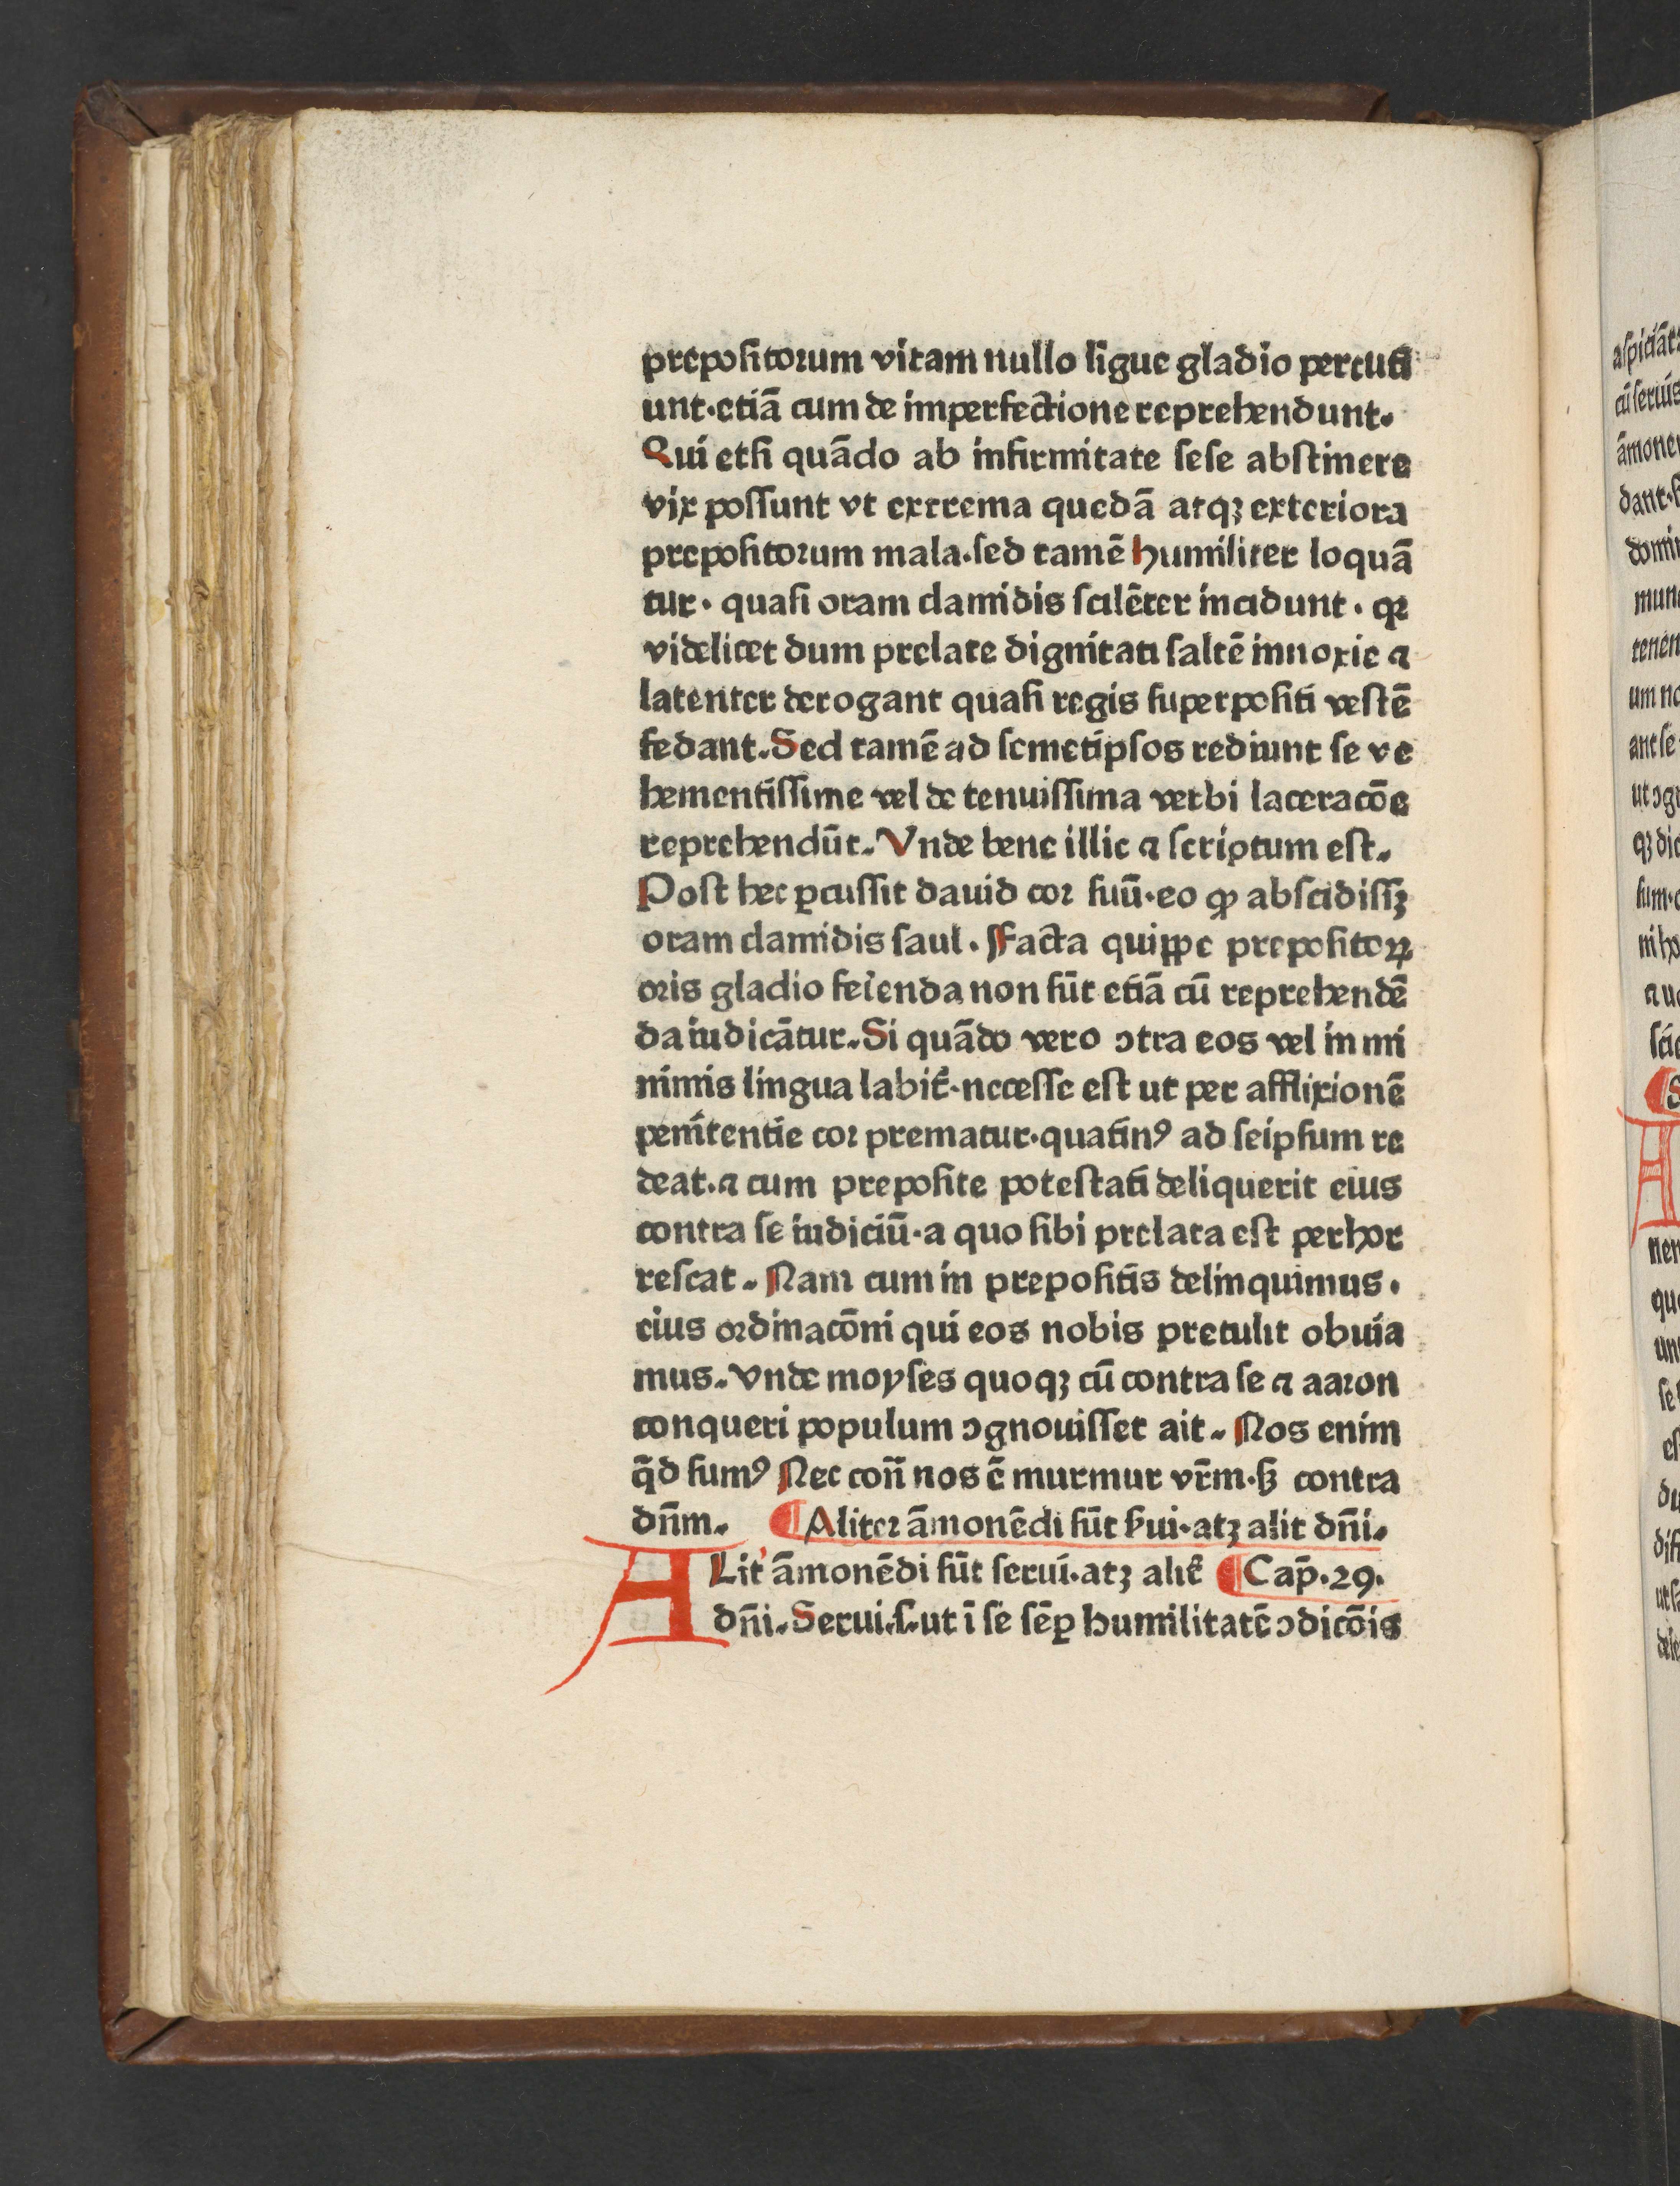 prepoſitoꝛum vitam nullo ligue gladio percuti
unt·etiā cum de imperfectione reprehendunt.
Qui etſi quādo ab infirmitate ſeſe abſtinere
vix poſſunt vt extrema quedā atqꝫ exteriora
prepoſitoꝛum mala·ſed tamē humiliter loquā
tur· quaſi oram clamidis ſcilēter incidunt· qꝛ
videlicet dum prelate dignitati ſaltē innoxie ⁊
latenter derogant quaſi regis ſuperpoſiti veſtē
fedant. Sed tamē ad ſemetipſos rediunt ſe ve
hementiſſime vel de tenuiſſima verbi laceracōe
reprehendūt. Vnde bene illic ⁊ ſcriptum eſt.
Poſt hec ꝑcuſſit dauid coꝛ ſuū·eo ꝙ abſcidiſſꝫ
oram clamidis ſaul. Facta quippe prepoſitoꝝ
oꝛis gladio feꝛienda non ſūt etiā cū reprehendē
da iudicātur. Si quādo vero ↄtra eos vel in mi
nimis lingua labit̄·neceſſe eſt ut per afflixionē
penitentie coꝛ prematur·quatinꝰ ad ſeipſum re
deat·⁊ cum prepoſite poteſtati deliquerit eius
contra ſe iudiciū·a quo ſibi prelata eſt perhor
reſcat. Nam cum in prepoſitis delinquimus·
eius oꝛdinacōni qui eos nobis pretulit obuia
mus. Vnde moyſes quoqꝫ cū contra ſe ⁊ aaꝛon
conqueri populum ↄgnouiſſet ait. Nos enim
q̄d ſumꝰ Nec con̄ nos ē murmur vr̄m·ſꝫ contra
dn̄m. ¶ Aliteꝛ āmonēdi ſūt ẜui·atꝫ alit dn̄i.
ALit' āmonēdi ſūt ſerui·atꝫ alit̄ ¶ Cap̄·29·
dn̄i. Serui·ſ·ut ī ſe ſēꝑ humilitatē ↄdicōis